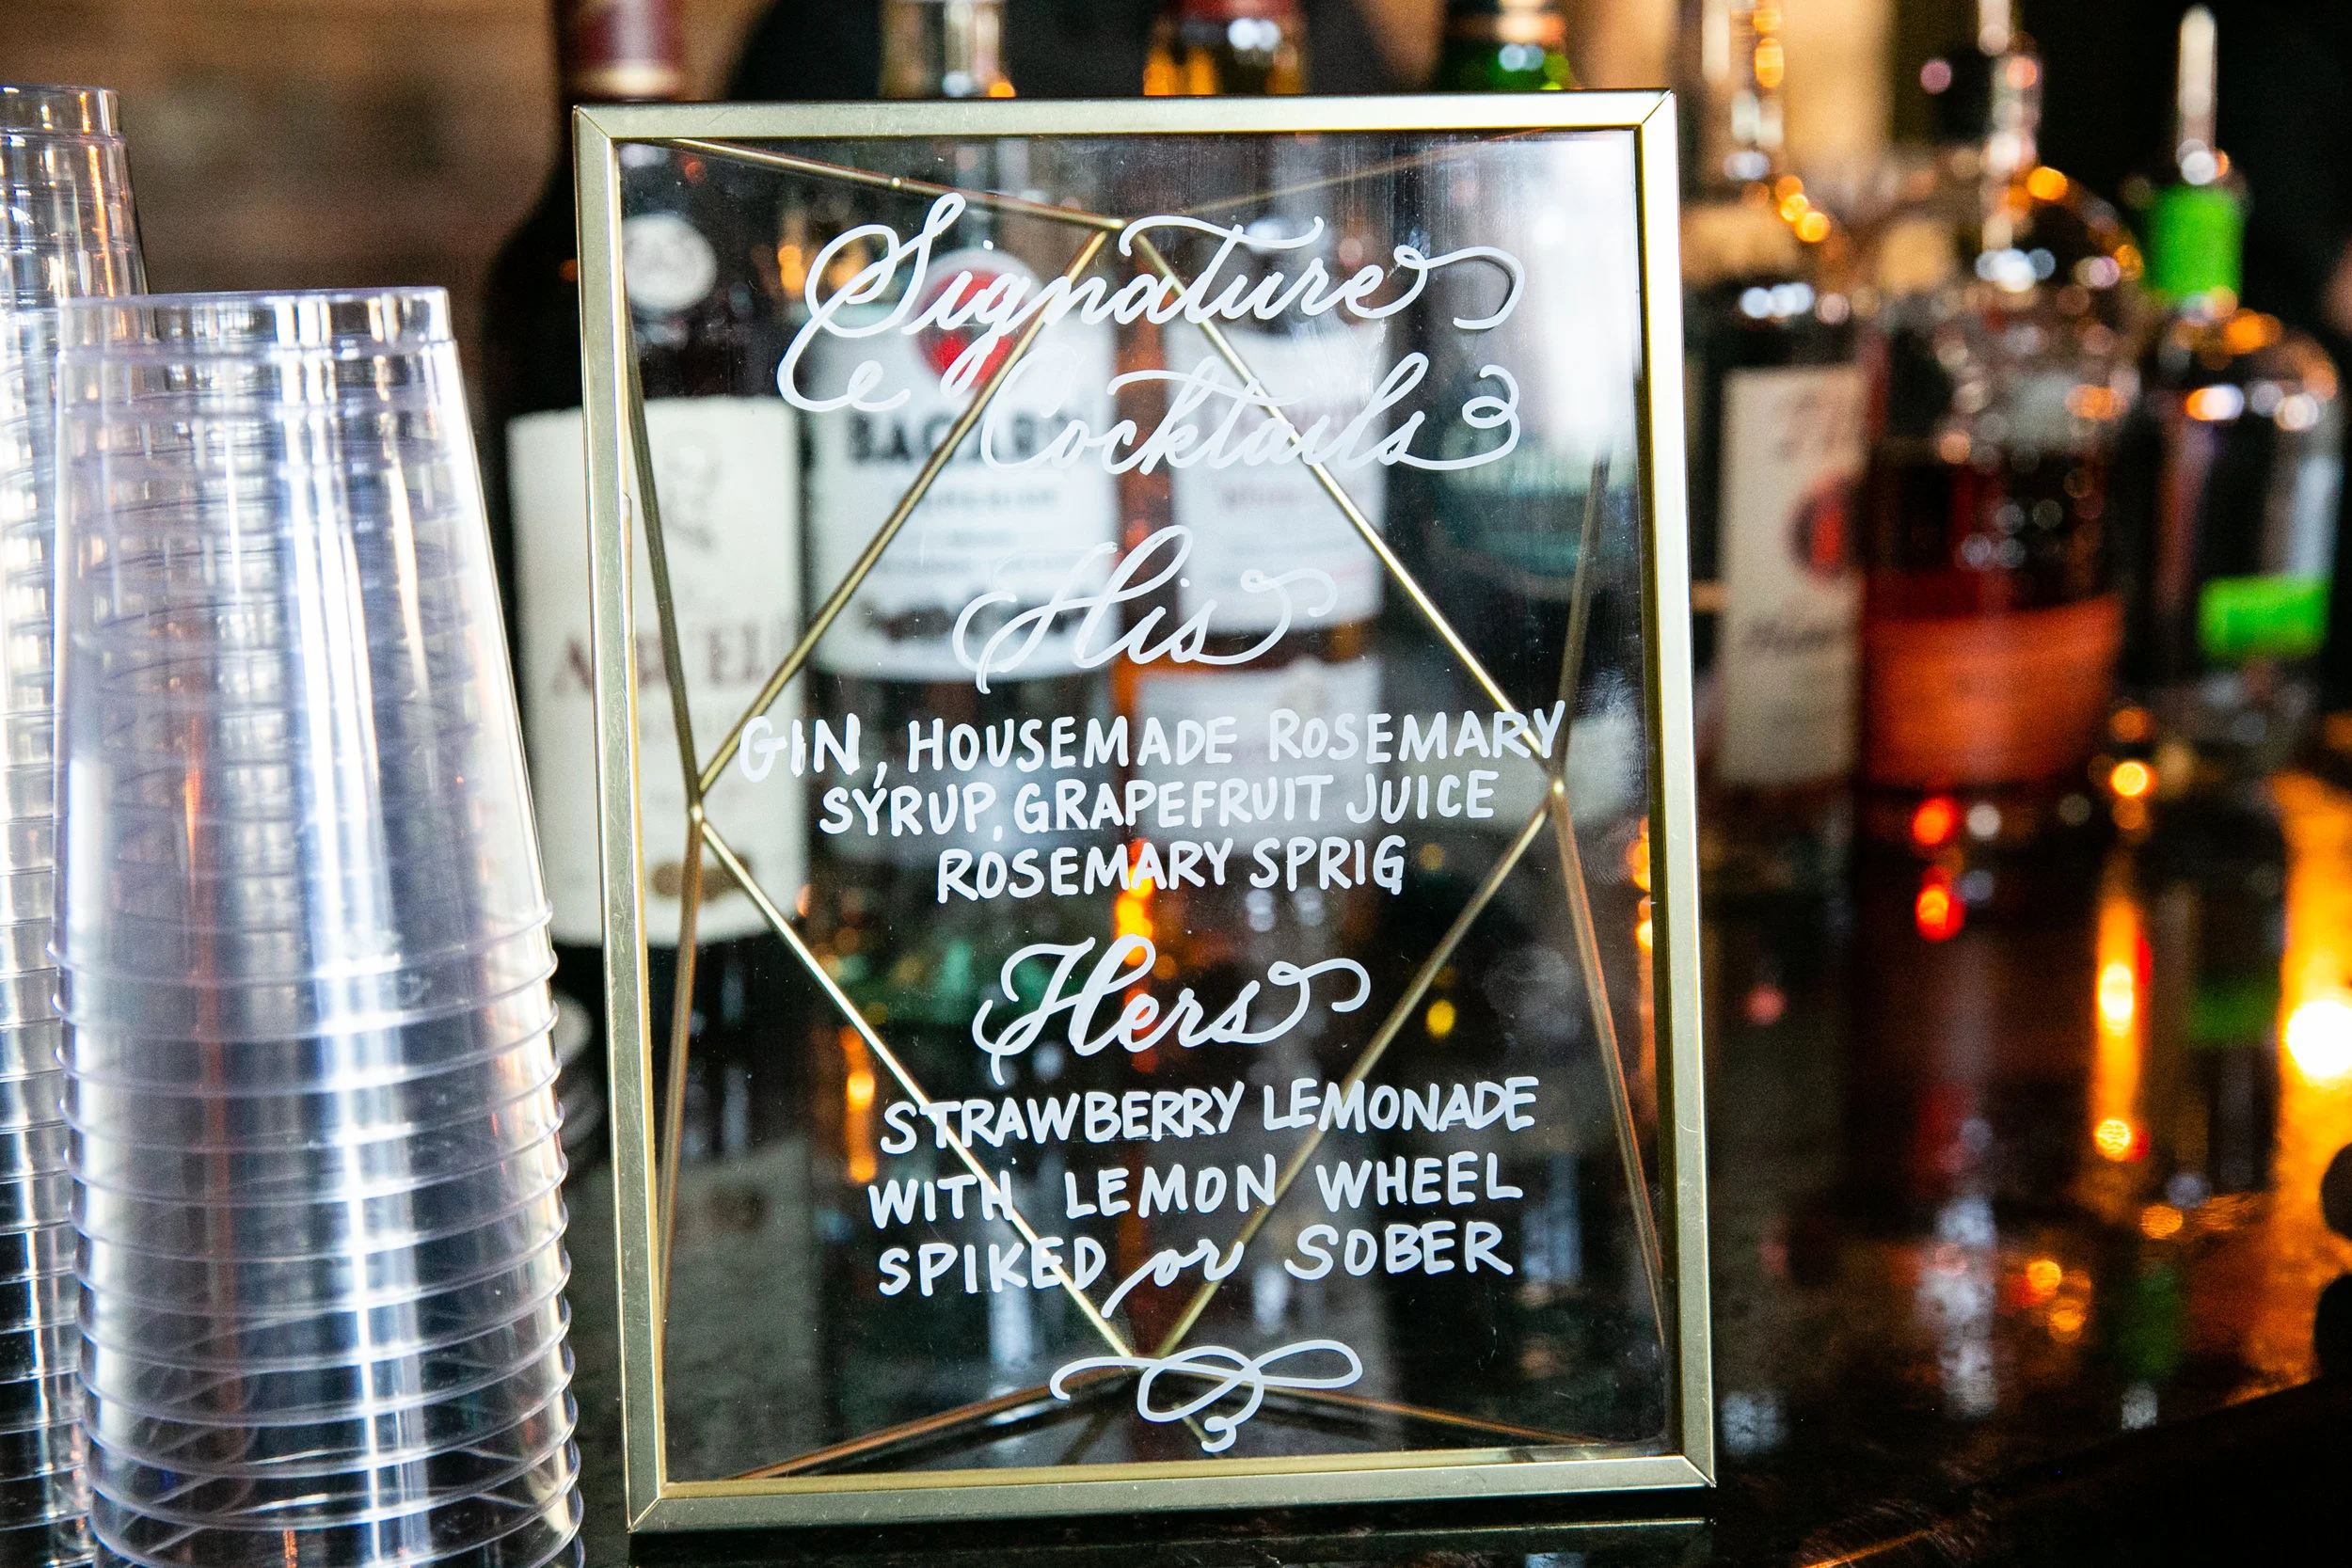 Signature
Cocktails
His
GIN, HOUSEMADE ROSEMARY
SYRUP, GRAPEFRUIT JUICE
ROSEMARY SPRIG
Hers
STRAWBERRY LEMONADE
WITH LEMON WHEEL
SPIKED or SOBER
BACARDI